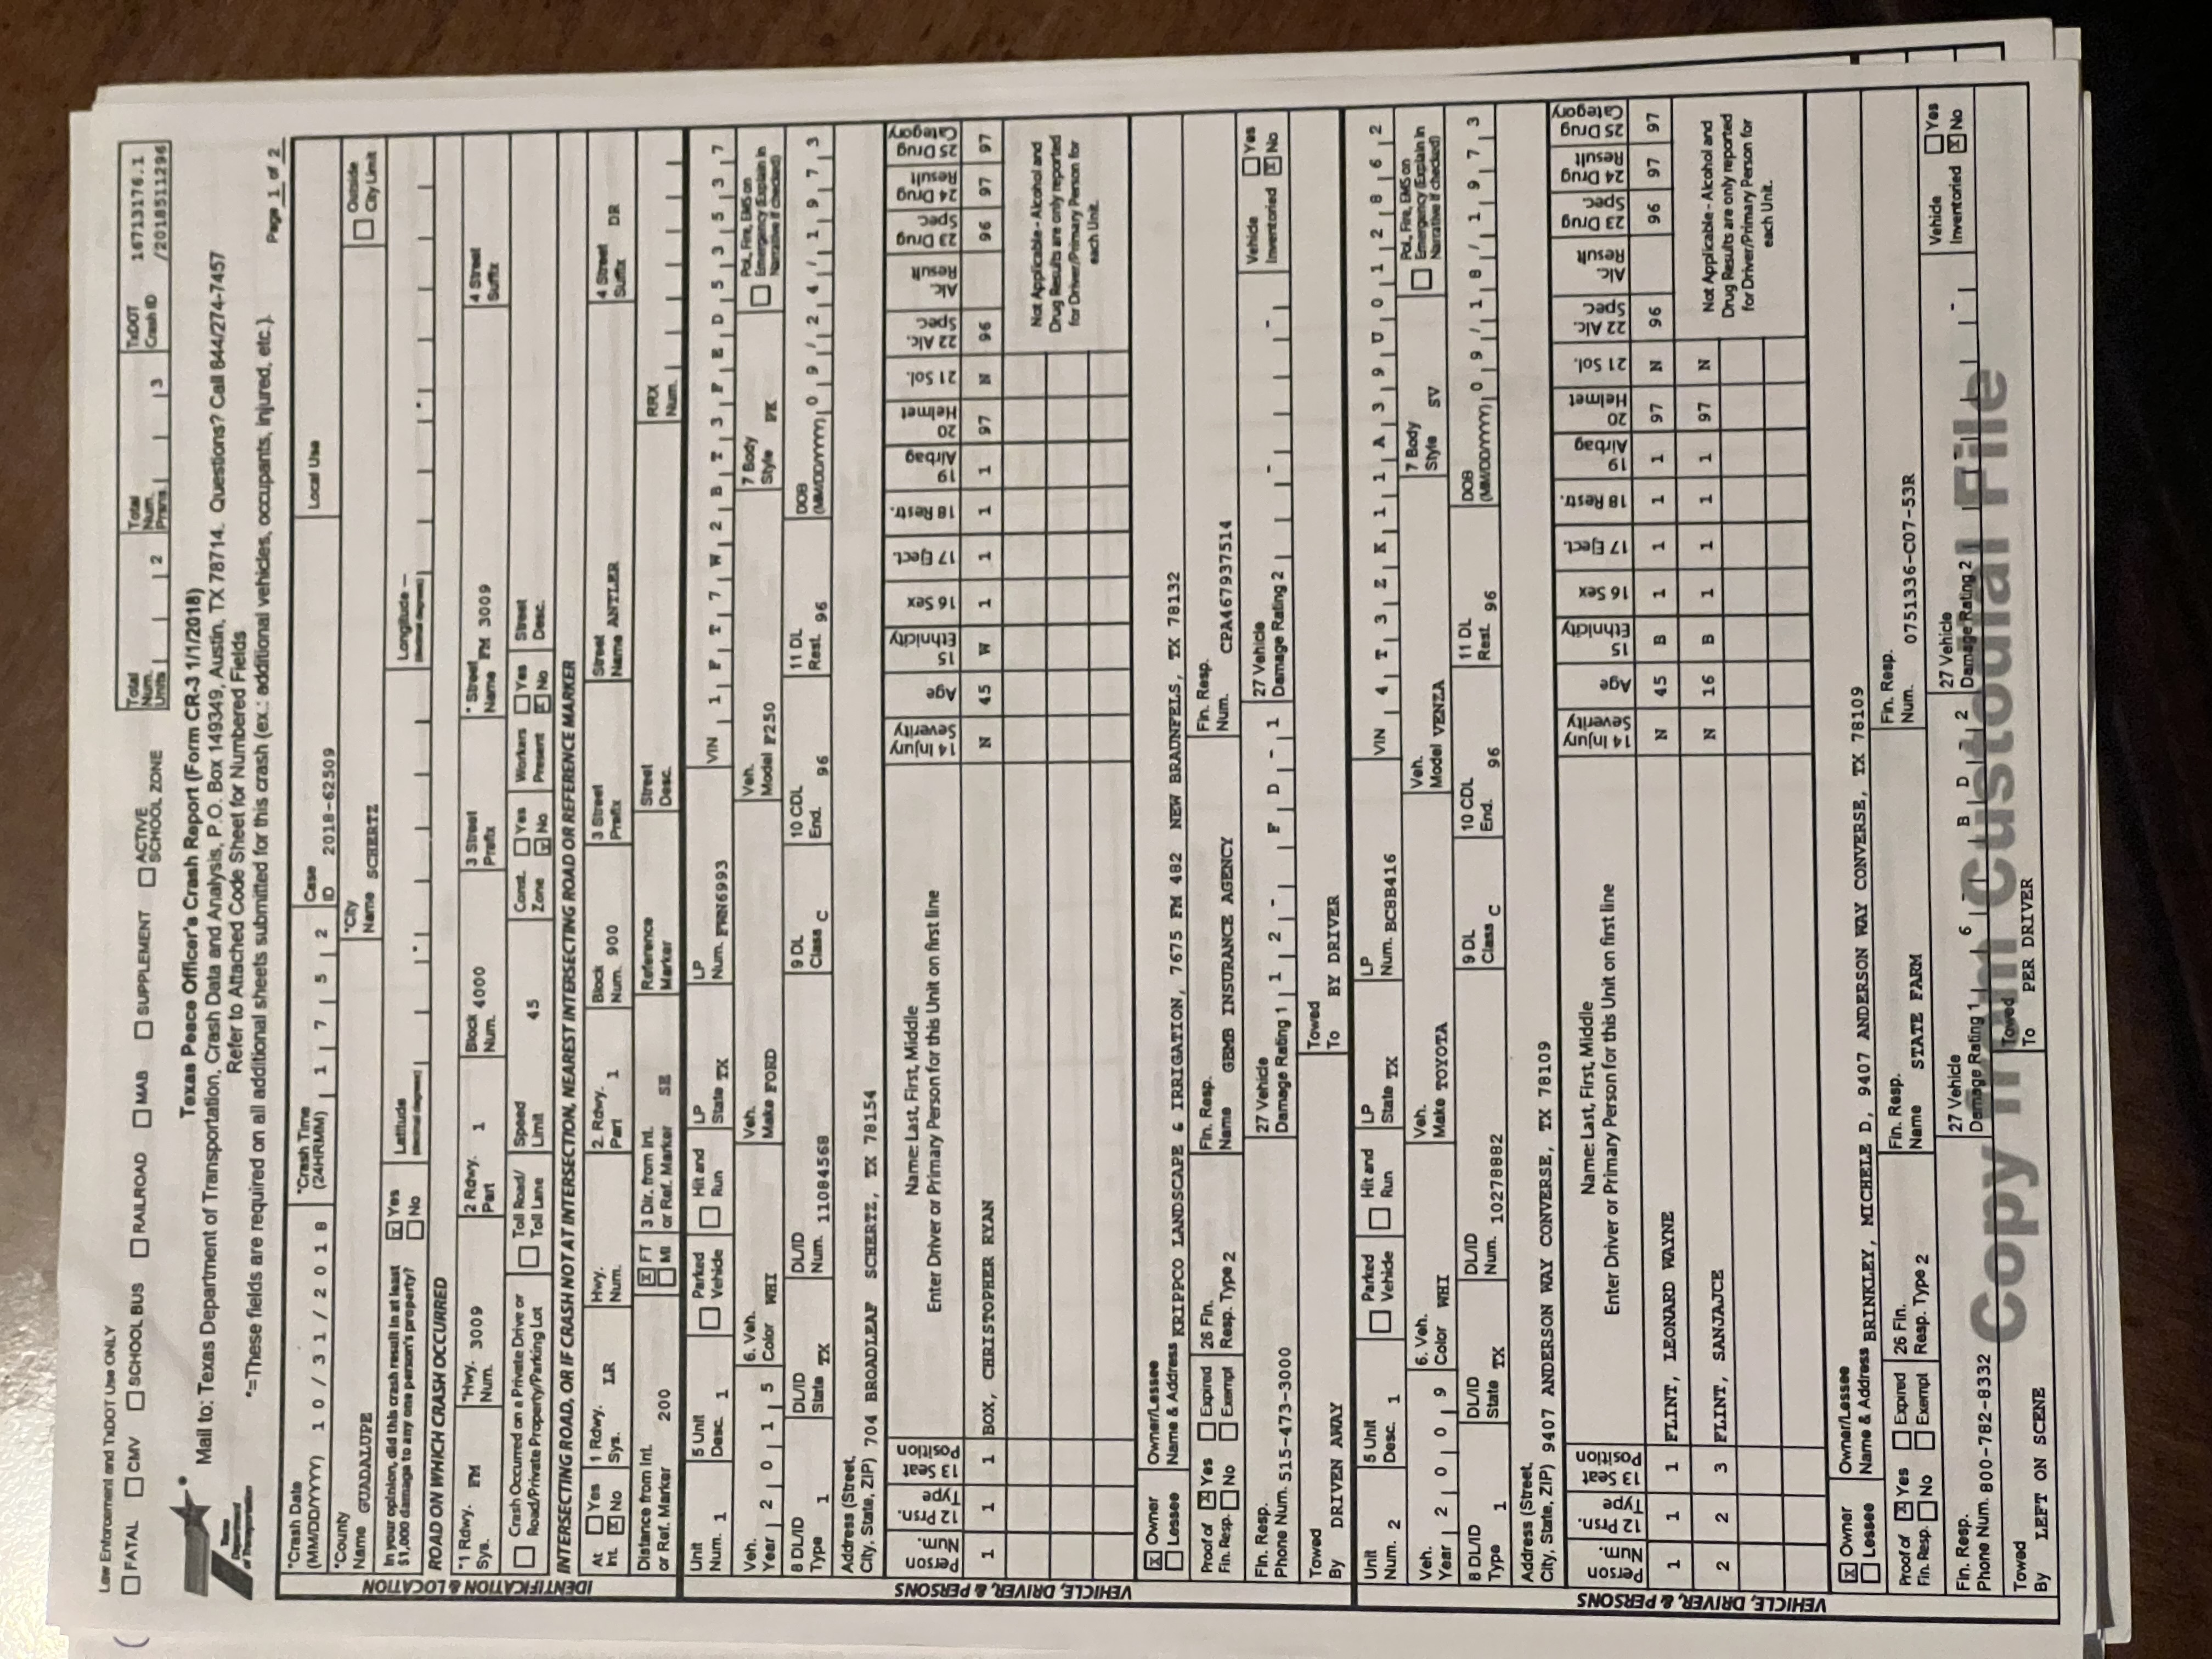 Law Enforcement and TxDOT Use ONLY
☐ FATAL ☐ CMV ☐ SCHOOL BUS ☐ RAILROAD ☐ MAB ☐ SUPPLEMENT ☐ ACTIVE SCHOOL ZONE
Total Num. Units 2 Total Num. Prsns. 3 TxDOT Crash ID 16713176.1 /2018511296
Texas Department of Transportation
Texas Peace Officer's Crash Report (Form CR-3 1/1/2018)
Mail to: Texas Department of Transportation, Crash Data and Analysis, P.O. Box 149349, Austin, TX 78714. Questions? Call 844/274-7457
Refer to Attached Code Sheet for Numbered Fields
*=These fields are required on all additional sheets submitted for this crash (ex.: additional vehicles, occupants, injured, etc.). Page 1 of 2
IDENTIFICATION & LOCATION
*Crash Date (MM/DD/YYYY) 10/31/2018 *Crash Time (24HRMM) 1752 Case ID 2018-62509 Local Use
*County Name GUADALUPE *City Name SCHERTZ ☐ Outside City Limit
In your opinion, did this crash result in at least $1,000 damage to any one person's property? ☒ Yes ☐ No Latitude (decimal degrees) Longitude (decimal degrees)
ROAD ON WHICH CRASH OCCURRED
*1 Rdwy. Sys. FM *Hwy. Num. 3009 2 Rdwy. Part 1 Block Num. 4000 3 Street Prefix *Street Name FM 3009 4 Street Suffix
☐ Crash Occurred on a Private Drive or Road/Private Property/Parking Lot ☐ Toll Road/ Toll Lane Speed Limit 45 Const. Zone ☐ Yes ☒ No Workers Present ☐ Yes ☒ No Street Desc.
INTERSECTING ROAD, OR IF CRASH NOT AT INTERSECTION, NEAREST INTERSECTING ROAD OR REFERENCE MARKER
At Int. ☐ Yes ☒ No 1 Rdwy. Sys. LR Hwy. Num. 2. Rdwy. Part 1 Block Num. 900 3 Street Prefix Street Name ANTLER 4 Street Suffix DR
Distance from Int. or Ref. Marker 200 ☒ FT ☐ MI 3 Dir. from Int. or Ref. Marker SE Reference Marker Street Desc. RRX Num.
VEHICLE, DRIVER, & PERSONS
Unit Num. 1 5 Unit Desc. 1 ☐ Parked Vehicle ☐ Hit and Run LP State TX LP Num. FRN6993 VIN 1FT7W2BT3FED53537
Veh. Year 2015 6. Veh. Color WHI Veh. Make FORD Veh. Model F250 7 Body Style PK ☐ Pol., Fire, EMS on Emergency (Explain in Narrative if checked)
8 DL/ID Type 1 DL/ID State TX DL/ID Num. 11084568 9 DL Class C 10 CDL End. 96 11 DL Rest. 96 DOB (MM/DD/YYYY) 09/24/1973
Address (Street, City, State, ZIP) 704 BROADLEAF SCHERTZ, TX 78154
Person Num. 12 Prsn. Type 13 Seat Position Name: Last, First, Middle Enter Driver or Primary Person for this Unit on first line 14 Injury Severity Age 15 Ethnicity 16 Sex 17 Eject. 18 Restr. 19 Airbag 20 Helmet 21 Sol. 22 Alc. Spec Alc. Result 23 Drug Spec 24 Drug Result 25 Drug Category
1 1 1 BOX, CHRISTOPHER RYAN N 45 W 1 1 1 1 97 N 96 96 97 97
Not Applicable - Alcohol and Drug Results are only reported for Driver/Primary Person for each Unit.
☒ Owner ☐ Lessee Owner/Lessee Name & Address KRIPPCO LANDSCAPE & IRRIGATION, 7675 FM 482 NEW BRAUNFELS, TX 78132
Proof of Fin. Resp. ☒ Yes ☐ No ☐ Expired ☐ Exempt 26 Fin. Resp. Type 2 Fin. Resp. Name GEMB INSURANCE AGENCY Fin. Resp. Num. CPA467937514
Fin. Resp. Phone Num. 515-473-3000 27 Vehicle Damage Rating 1 12-FD-1 27 Vehicle Damage Rating 2 Vehicle Inventoried ☐ Yes ☒ No
Towed By DRIVEN AWAY Towed To BY DRIVER
VEHICLE, DRIVER, & PERSONS
Unit Num. 2 5 Unit Desc. 1 ☐ Parked Vehicle ☐ Hit and Run LP State TX LP Num. BC8B416 VIN 4T3ZK11A39U012862
Veh. Year 2009 6. Veh. Color WHI Veh. Make TOYOTA Veh. Model VENZA 7 Body Style SV ☐ Pol., Fire, EMS on Emergency (Explain in Narrative if checked)
8 DL/ID Type 1 DL/ID State TX DL/ID Num. 10278882 9 DL Class C 10 CDL End. 96 11 DL Rest. 96 DOB (MM/DD/YYYY) 09/18/1973
Address (Street, City, State, ZIP) 9407 ANDERSON WAY CONVERSE, TX 78109
Person Num. 12 Prsn. Type 13 Seat Position Name: Last, First, Middle Enter Driver or Primary Person for this Unit on first line 14 Injury Severity Age 15 Ethnicity 16 Sex 17 Eject. 18 Restr. 19 Airbag 20 Helmet 21 Sol. 22 Alc. Spec Alc. Result 23 Drug Spec 24 Drug Result 25 Drug Category
1 1 1 FLINT, LEONARD WAYNE N 45 B 1 1 1 1 97 N 96 96 97 97
2 2 3 FLINT, SANJAJCE N 16 B 1 1 1 1 97 N
Not Applicable - Alcohol and Drug Results are only reported for Driver/Primary Person for each Unit.
☒ Owner ☐ Lessee Owner/Lessee Name & Address BRINKLEY, MICHELE D, 9407 ANDERSON WAY CONVERSE, TX 78109
Proof of Fin. Resp. ☒ Yes ☐ No ☐ Expired ☐ Exempt 26 Fin. Resp. Type 2 Fin. Resp. Name STATE FARM Fin. Resp. Num. 0751336-C07-53R
Fin. Resp. Phone Num. 800-782-8332 27 Vehicle Damage Rating 1 6-BD-2 27 Vehicle Damage Rating 2 Vehicle Inventoried ☐ Yes ☒ No
Towed By LEFT ON SCENE Towed To PER DRIVER
Copy from Custodial File